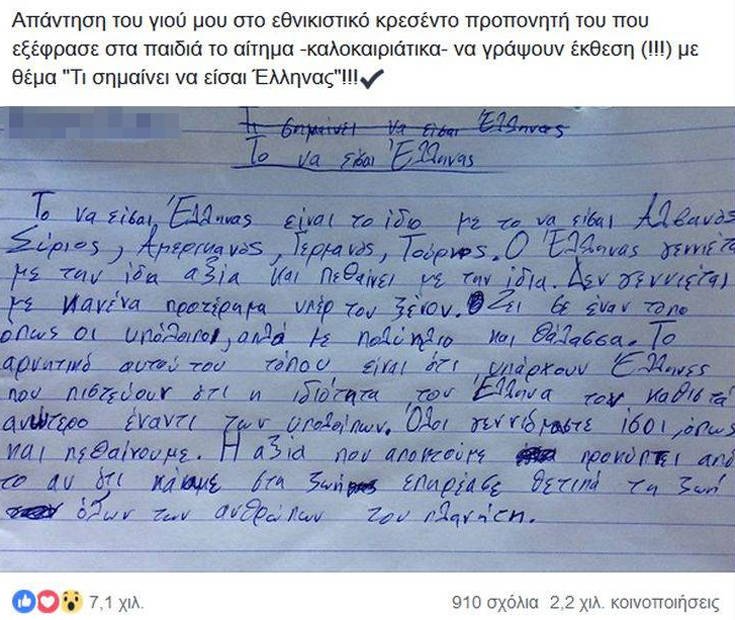 Απάντηση του γιού μου στο εθνικιστικό κρεσέντο προπονητή του που
εξέφρασε στα παιδιά το αίτημα -καλοκαιριάτικα- να γράψουν έκθεση (!!!) με
θέμα "Τι σημαίνει να είσαι Έλληνας"!!!✔
Τι σημαίνει να είσαι Έλληνας
Το να είσαι Έλληνας
Το να είσαι Έλληνας είναι το ίδιο με το να είσαι Αλβανός
Σύριος, Αμερικανός, Γερμανός, Τούρκος. Ο Έλληνας γεννιέται
με την ίδια αξία και πεθαίνει με την ίδια. Δεν γεννιέται
με κανένα προτέρημα υπέρ του ξένου. Ζει σε έναν τόπο
όπως οι υπόλοιποι, απλά με πολύ ήλιο και θάλασσα. Το
αρνητικό αυτού του τόπου είναι ότι υπάρχουν Έλληνες
που πιστεύουν ότι η ιδιότητα του Έλληνα τον καθιστά
ανώτερο έναντι των υπολοίπων. Όλοι γεννιόμαστε ίσοι, όπως
και πεθαίνουμε. Η αξία που αποκτούμε προκύπτει από
το αν ότι κάναμε στα ζωή επηρέασε θετικά τη ζωή
όλων των ανθρώπων του πλανήτη.
7,1 χιλ.
910 σχόλια 2,2 χιλ. κοινοποιήσεις